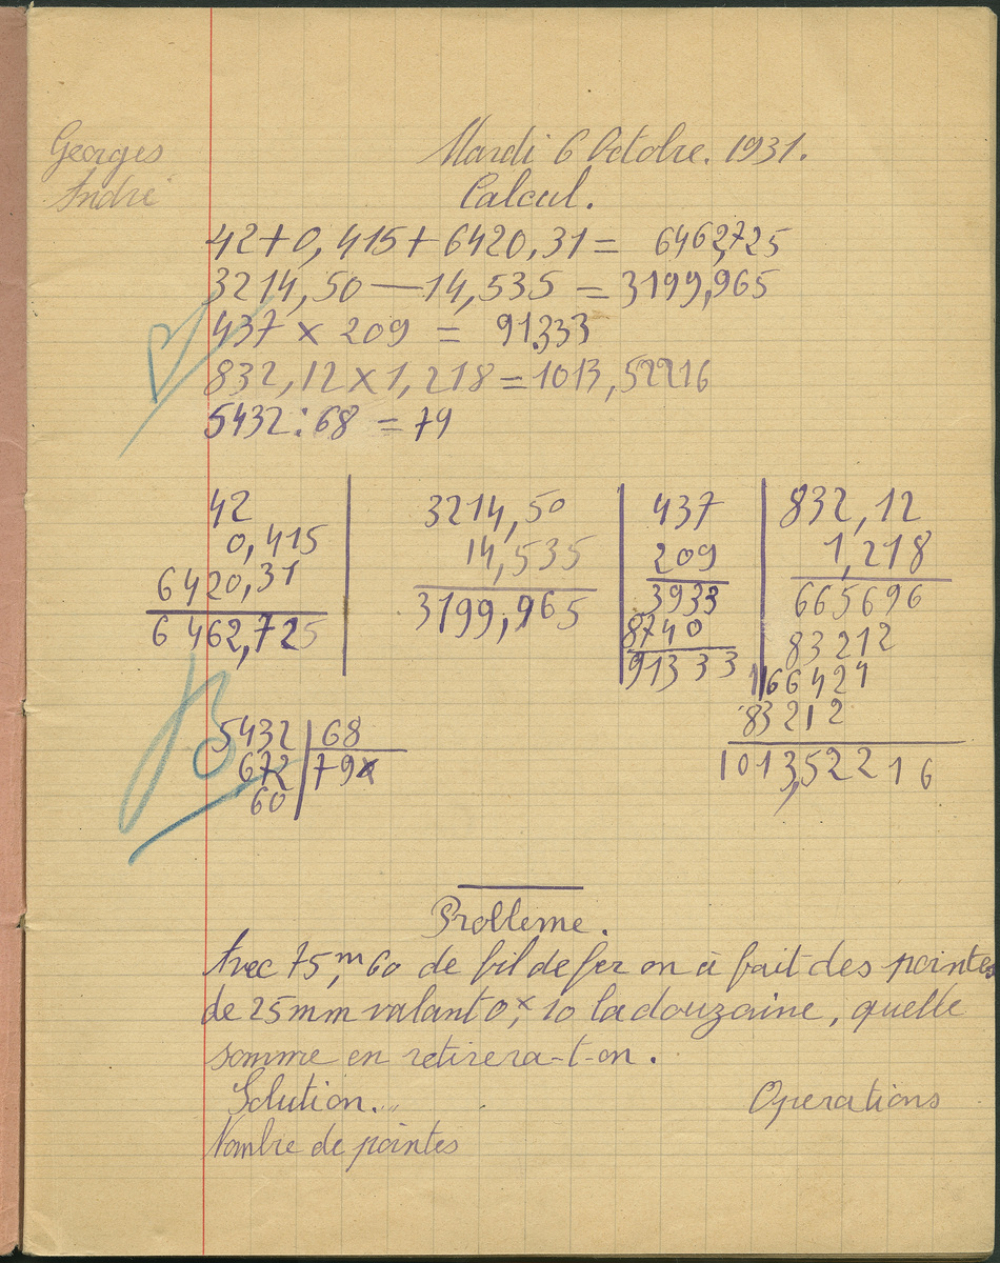 Georges
André
Mardi 6 Octobre. 1931.
Calcul.
42+0,415+6420,31= 6462,725
3214,50—14,535 = 3199,965
437 × 209 = 91333
832,12×1,218=1013,52216
5432:68 = 79
42
0,415
6420,31
6462,725
3214,50
14,535
3199,965
437
209
3933
8740
91333
832,12
1,218
665696
83212
166424
83212
1013,52216
5432 | 68
672 | 79
60
B
B
Problème.
Avec 75,m60 de fil de fer on à fait des pointes
de 25mm valant 0,×10 la douzaine, quelle
somme en retirera-t-on.
Solution.
Operations
Nombre de pointes